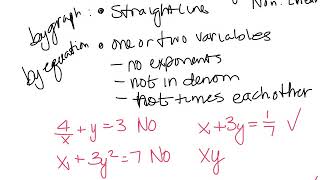 by graph: • Straight line
Non-Linear
by equation • one or two variables
— no exponents
— not in denom
— not times each other
4/x + y = 3 No
x + 3y = 1/7 ✓
x + 3y² = 7 No
xy